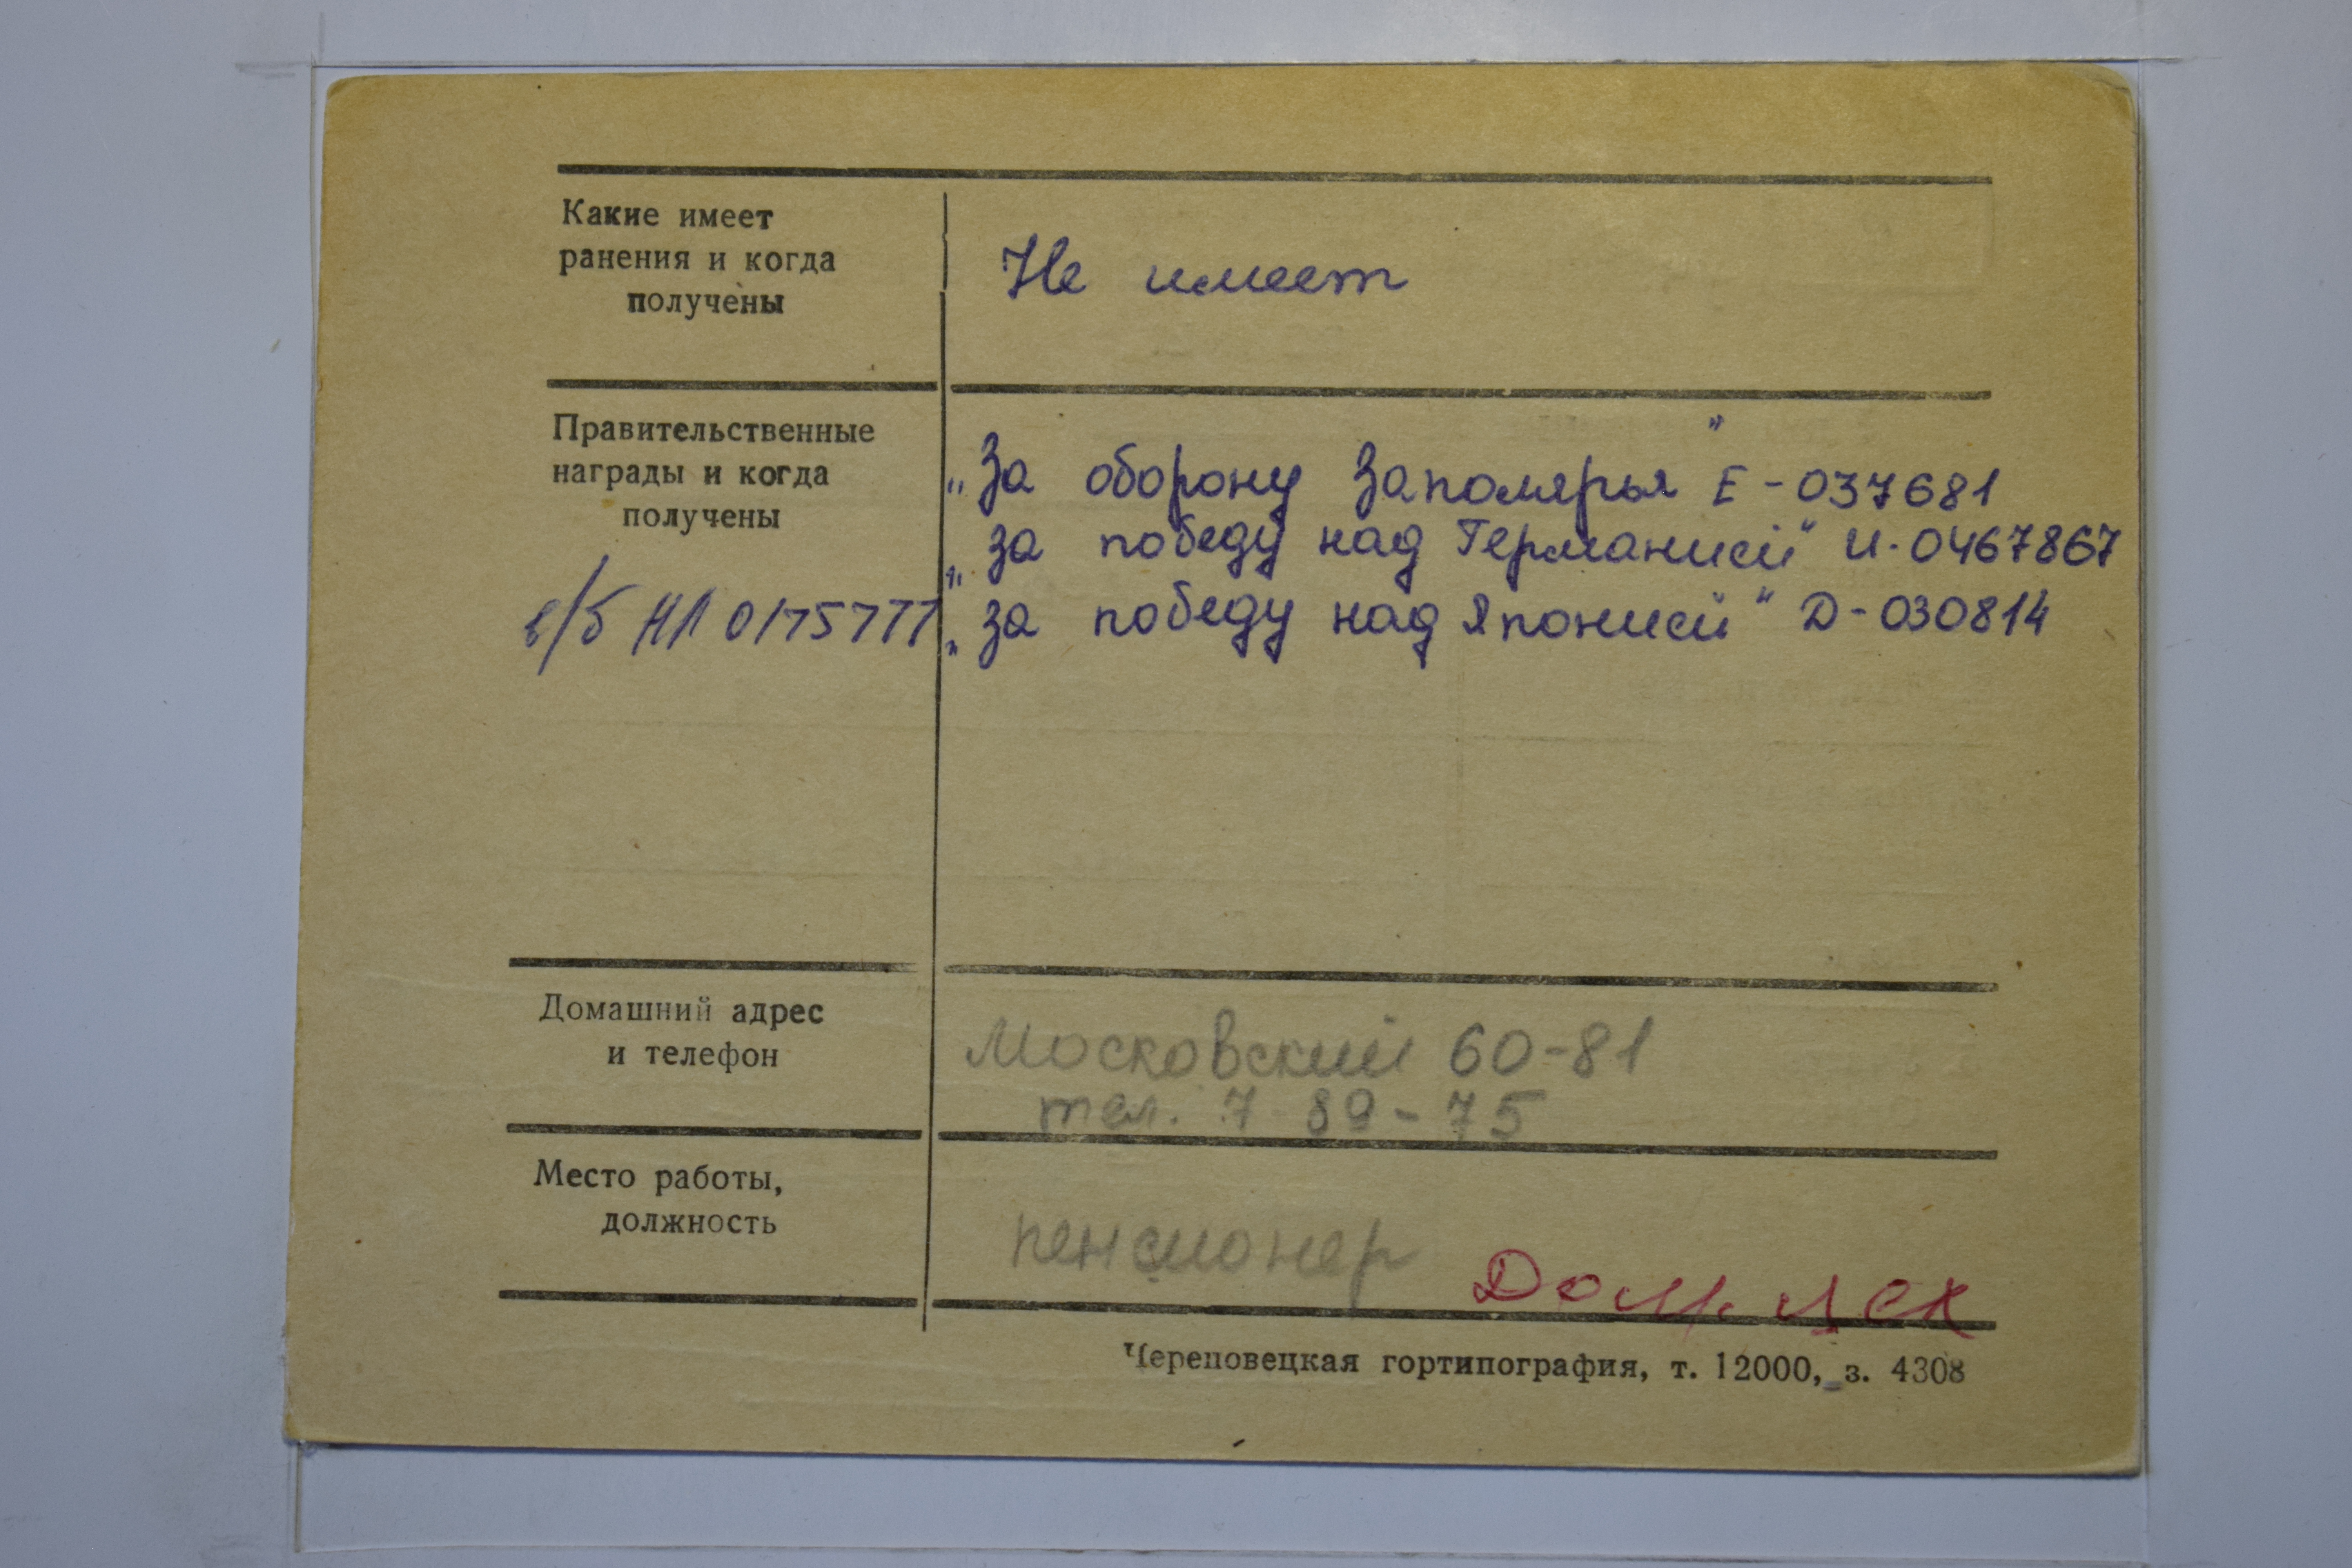 Какие имеет
ранения и когда
получены
Не имеет
Правительственные
награды и когда
получены
в/б НЛ 0175777
„За оборону Заполярья" Е-037681
„за победу над Германией" И-0467867
„за победу над Японией" Д-030814
Домашний адрес
и телефон
Московский 60-81
тел. 7-89-75
Место работы,
должность
пенсионер
Череповецкая гортипография, т. 12000, з. 4308